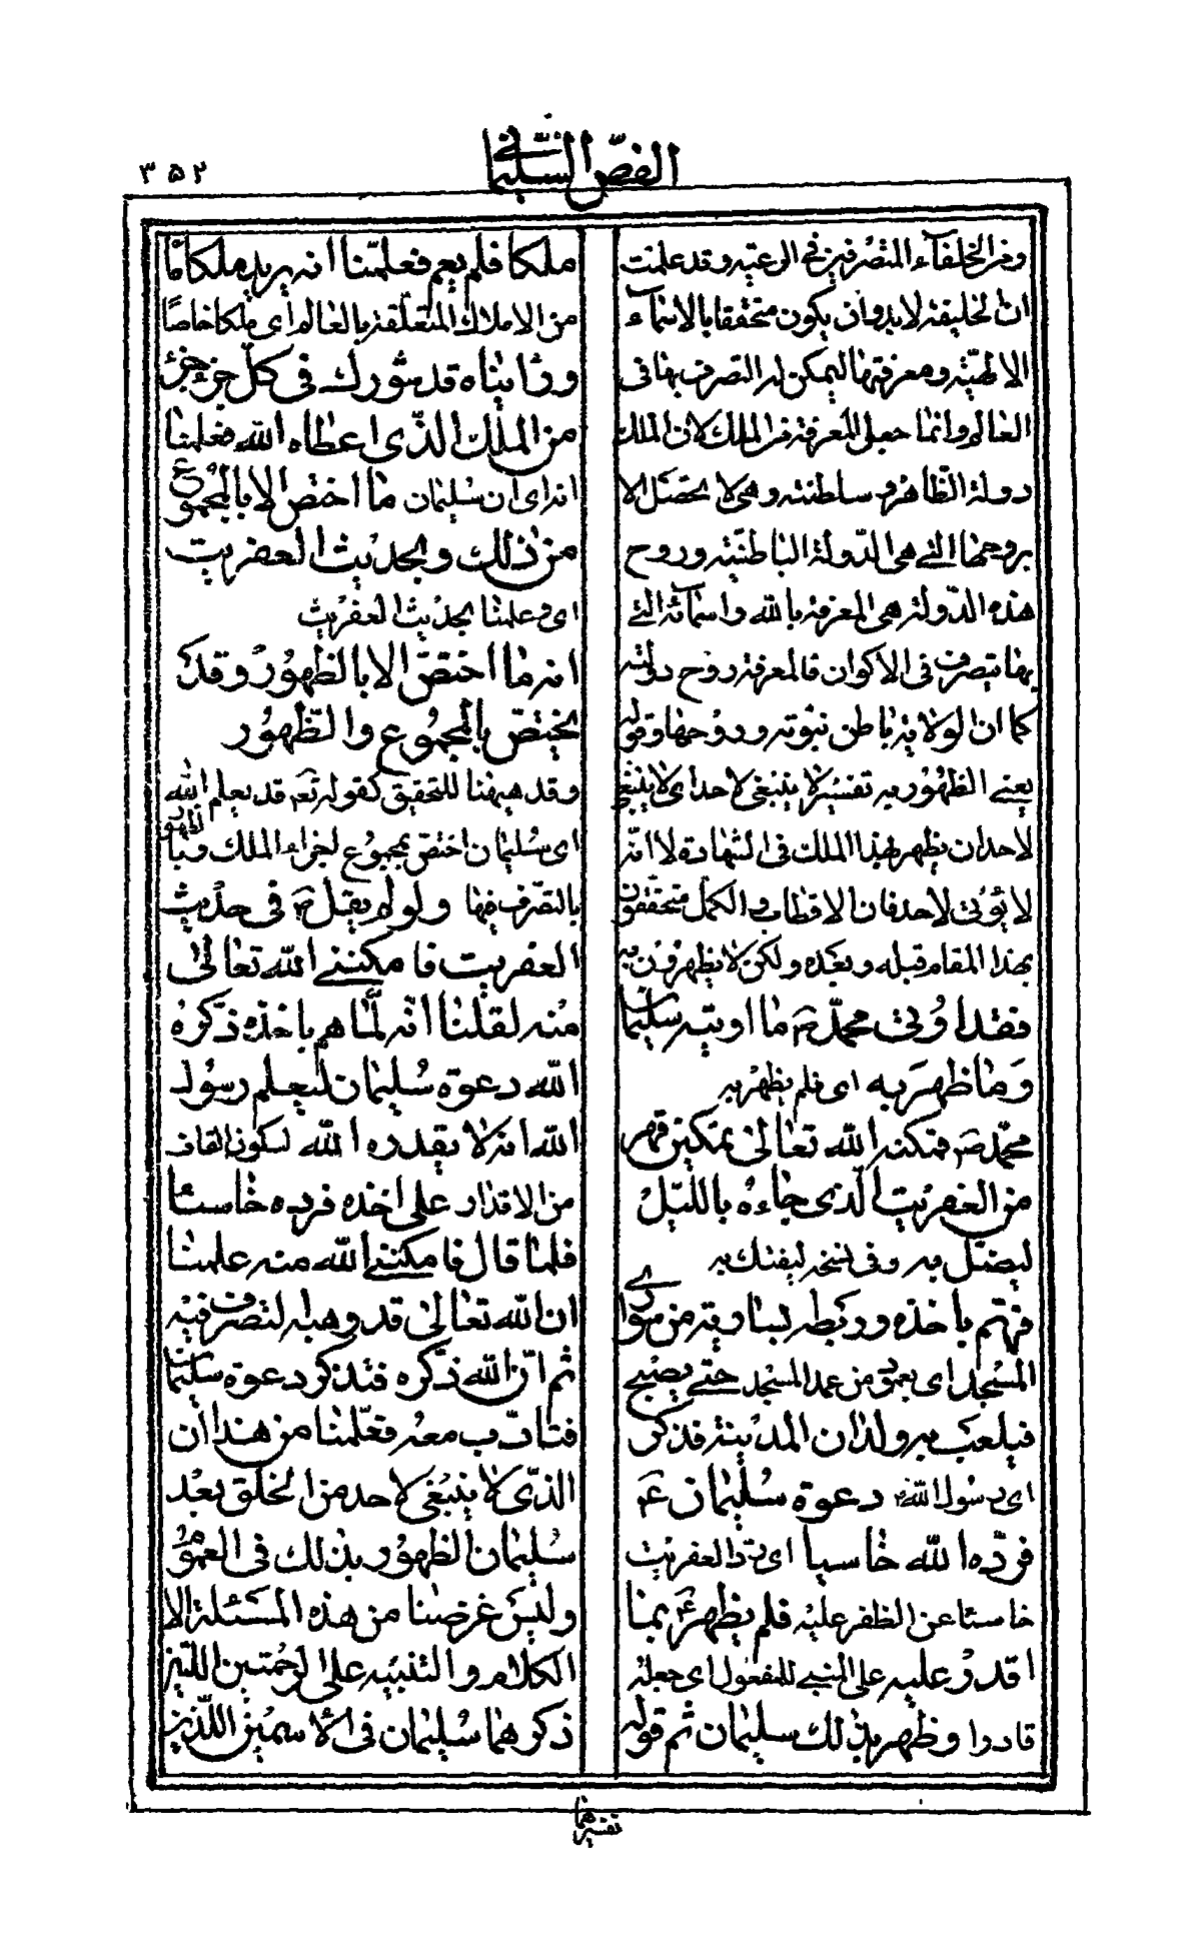 الفص السليماني
٣٥٢
ومن الخلفاء المتصرفين في الرعية وقد علمت
ان الخليفة لا بد وان يكون متحققا بالاسماء
الالهية ومعرفتها ليمكن له التصرف بها في
العالم وانما جعل المعرفة من الملك لان الملك
دولة الظاهر وسلطنته وهي لا تحصل الا
بروحها التي هي الدولة الباطنية وروح
هذه الدولة هي المعرفة بالله واسمائه التي
بها يتصرف في الاكوان فالمعرفة روح دولته
كما ان الولاية باطن نبوته وروحها وقوله
يعني الظهور به تفسير لا ينبغي لاحد اي لا ينبغي
لاحد ان يظهر بهذا الملك في الشهادة لا انه
لا يؤتى لاحد فان الاقطاب والكمل متحققون
بهذا المقام قبله وبعده ولكن لا يظهرون به
فقد اوتي محمد ص ما اوتيه سليمان
وما ظهر به اي فلم يظهر به
محمد ص فمكنه الله تعالى تمكين قهر
من العفريت الذي جاءه بالليل
ليضل به وفي نسخة ليفتك به
فهم باخذه وربطه بسارية من سواري
المسجد اي بعمود من عمد المسجد حتى يصبح
فيلعب به ولدان المدينة فذكر
اي رسول الله دعوة سليمان ع
فرده الله خاسيا اي رد العفريت
خاسئا عن الظفر عليه فلم يظهر ع بما
اقدر عليه على المبني للمفعول اي جعله
قادرا وظهر بذلك سليمان ثم قوله
ملكا فلم يعم فعلمنا انه يريد ملكا ما
من الاملاك المتعلقة بالعالم اي ملكا خاصا
ورايناه قد شورك في كل جزء جزء
من الملك الذي اعطاه الله فعلمنا
انه اي ان سليمان ما اختص الا بالمجموع
من ذلك وبحديث العفريت
اي وعلمنا بحديث العفريت
انه ما اختص الا بالظهور وقد
يختص بالمجموع والظهور
وقد ههنا للتحقيق كقوله تعم قد يعلم الله
اي سليمان اختص بمجموع اجزاء الملك وبالظهور
بالتصرف فيها ولو لم يقل ص في حديث
العفريت فامكنني الله تعالى
منه لقلنا انه لما هم باخذه ذكره
الله دعوة سليمان ليعلم رسول
الله انه لا يقدره الله لسكون القاف
من الاقدار على اخذه فرده خاسئا
فلما قال فامكنني الله منه علمنا
ان الله تعالى قد وهبه التصرف فيه
ثم ان الله ذكره فتذكر دعوة سليمان
فتادب معه فعلمنا من هذا ان
الذي لا ينبغي لاحد من الخلق بعد
سليمان الظهور بذلك في العموم
وليس غرضنا من هذه المسئلة الا
الكلام والتنبيه على الرحمتين اللتين
ذكرهما سليمان في الاسمين اللذين
تفسيرهما